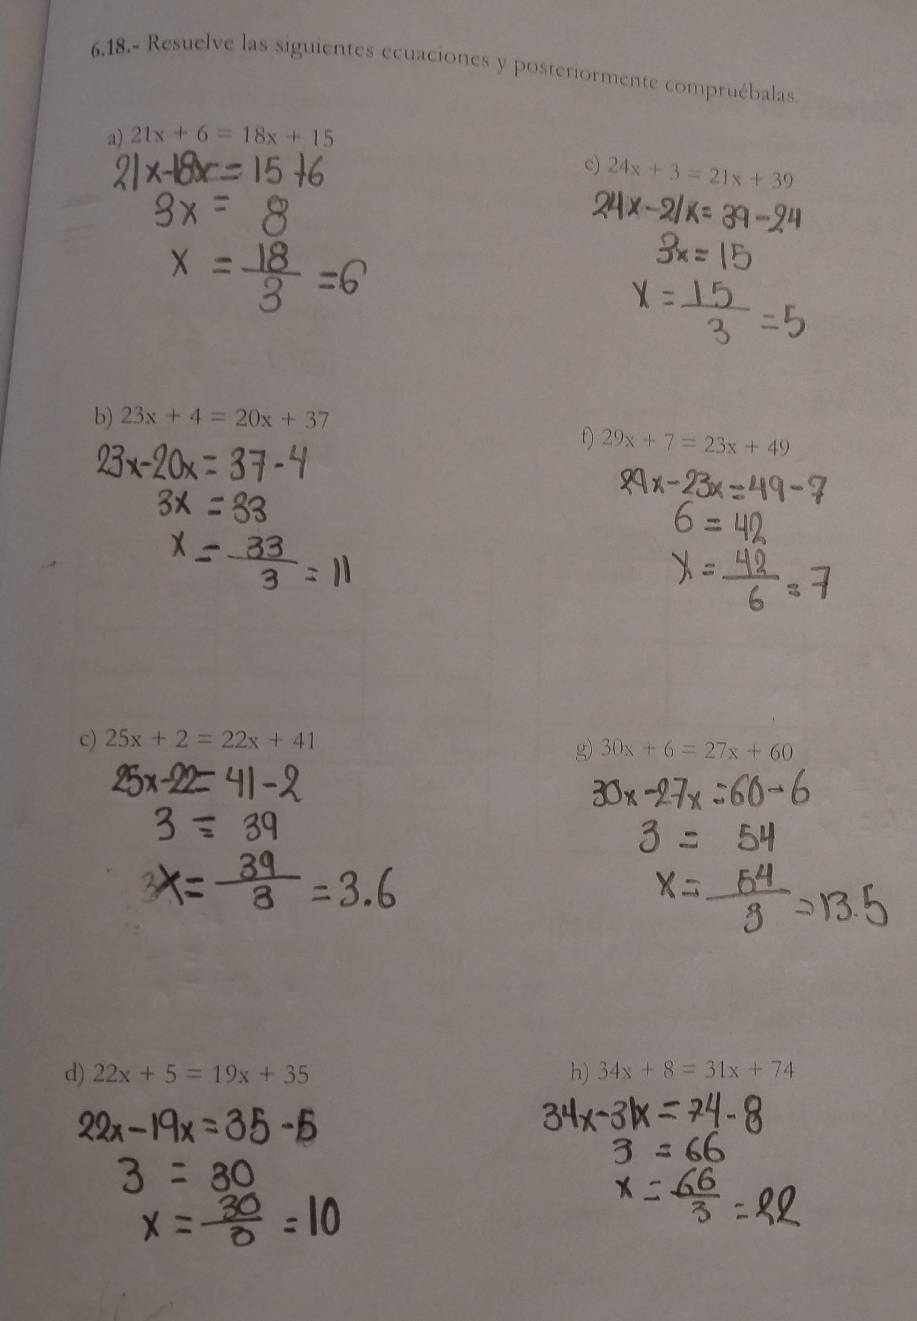 6.18.- Resuelve las siguientes ecuaciones y posteriormente compruébalas.
a) 21x + 6 = 18x + 15
21x-18x=15+6
3x = 8
x = 18/3 =6
b) 23x + 4 = 20x + 37
23x-20x=37-4
3x = 33
x = 33/3 = 11
c) 25x + 2 = 22x + 41
25x-22= 41-2
3 = 39
3x= 39/3 =3.6
d) 22x + 5 = 19x + 35
22x-19x=35-5
3 = 30
x = 30/3 =10
e) 24x + 3 = 21x + 39
24x-21x=39-24
3x=15
x = 15/3 =5
f) 29x + 7 = 23x + 49
29x-23x=49-7
6 = 42
x = 42/6 = 7
g) 30x + 6 = 27x + 60
30x-27x=60-6
3 = 54
x = 54/3 =13.5
h) 34x + 8 = 31x + 74
34x-31x=74-8
3 = 66
x = 66/3 =22